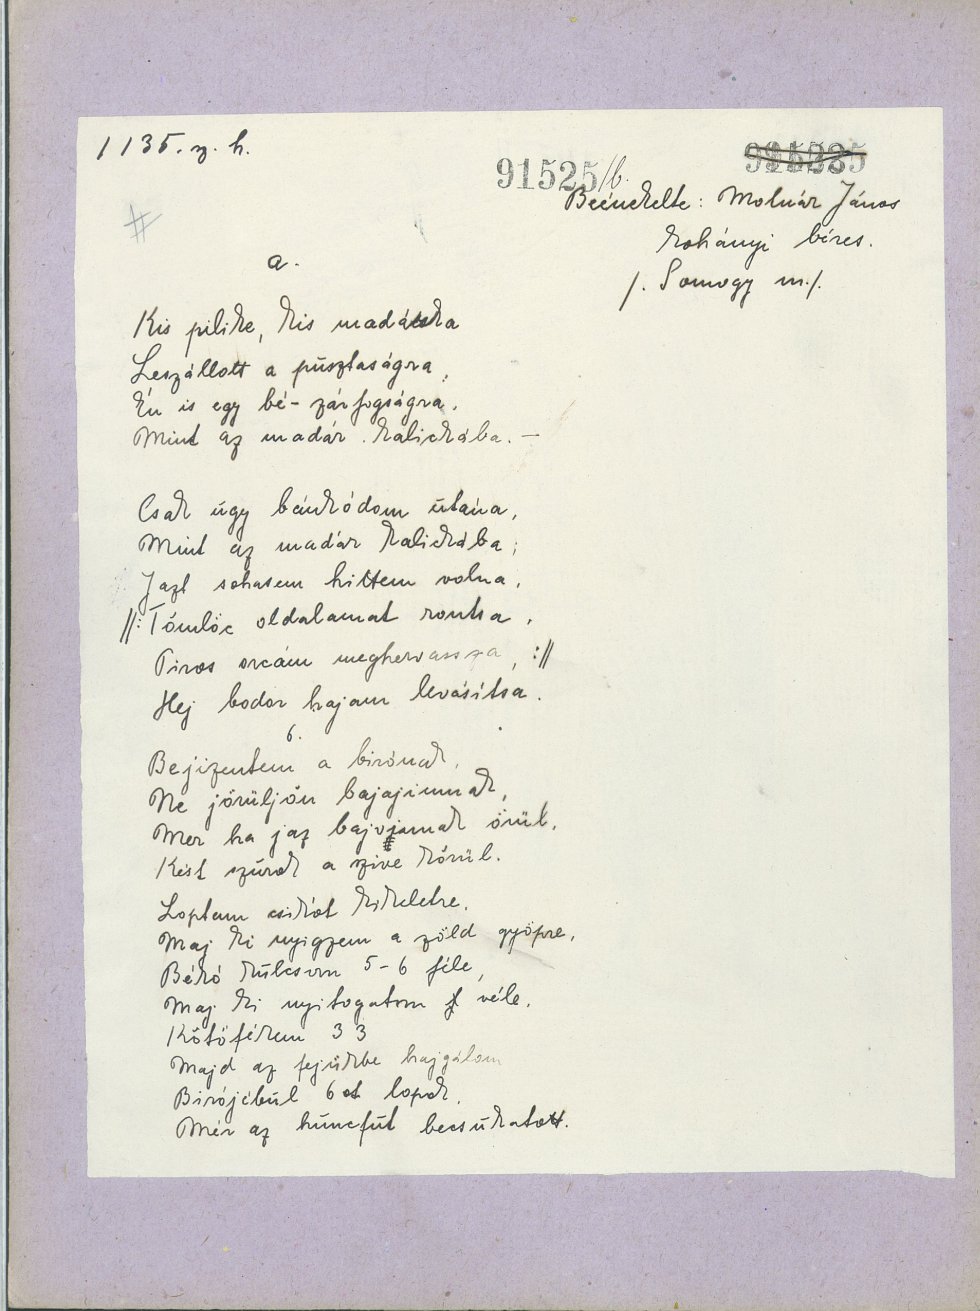 1135. z. h.
91525/b.
Beénekelte: Molnár János
kohányi béres.
/. Somogy m./.
a.
Kis pilike, kis madárka
Leszállott a pusztaságra,
Én is egy bé- zárfogságra.
Mint az madár kalickába. —
Csak úgy bánkódom utána,
Mint az madár kalickába;
Jazt sohasem hittem volna,
//: Tömlöc oldalamat rontsa,
Piros orcám meghervassza, ://
Hej bodor hajam levásítsa.
b.
Bejizentem a birónak,
Ne jörüljön bajajimnak,
Mer ha jaz bajojamak örül,
Kést szúrok a szive körül.
Loptam csikót kikeletre,
Maj ki nyigzem a zöld gyöpre,
Békó kulcsom 5-6 féle,
Maj ki nyitogatom véle.
Kötöfékem 33
Majd az fejükbe hajgálom
Birójébul 6ot lopok,
Mér az huncfut becsukatott.